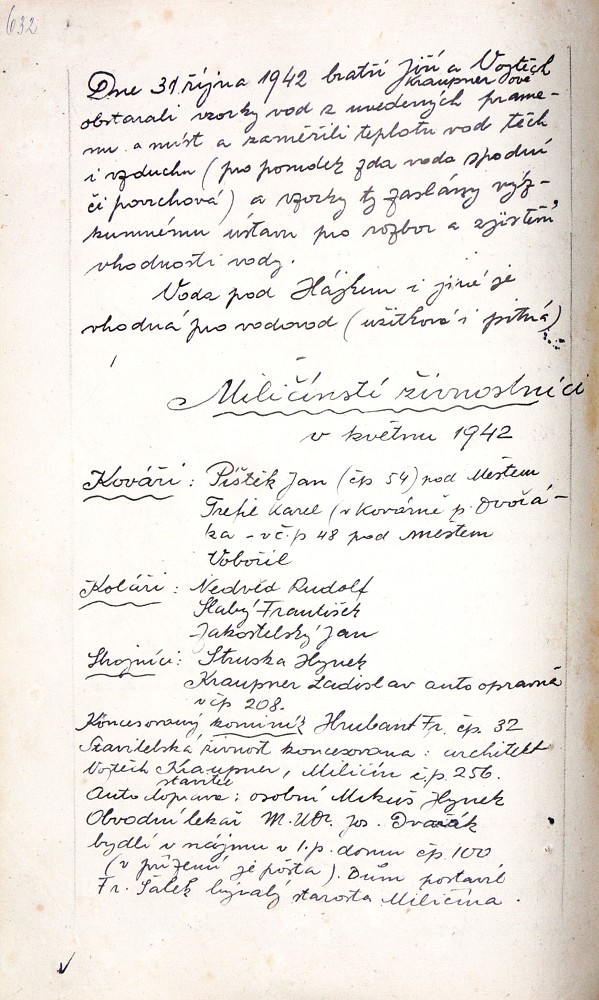 632
Dne 31 října 1942 bratři Jiří a Vojtěch
Kraupner ové
obstarali vzorky vod z uvedených prame-
nu a míst a zaměřili teplotu vod těch
i vzduchu (pro posudek zda voda spodní
či povrchová) a vzorky ty zaslány výz-
kumnému ústavu pro rozbor a zjištění
vhodnosti vody.
Voda pod Hájkem i jiné je
vhodná pro vodovod (užitková i pitná)
Miličínští živnostníci
v květnu 1942
Kováři: Pištěk Jan (čp 54) pod Městem
Trefil Karel (v Kovárně p. Dvořá-
ka - v č.p 48 pod městem
Vobořil
Koláři: Nedvěd Rudolf
Slabý František
Jakostelský Jan
Strojníci: Struska Hynek
Kraupner Ladislav autoopravna
v čp 208.
Koncesovaný kominík Hrubant Fr. čp. 32
Stavitelská živnost koncesovana: architekt
Vojtěch Kraupner, Miličín č.p. 256.
stavitel
Autodoprava: osobní Mikuš Hynek
Obvodní lékař M.UDr. Jos. Dvořák
bydlí v nájmu v 1.p. domu čp. 100
(v přízemí je pošta). Dům postavil
Fr. Šálek bývalý starosta Miličína.